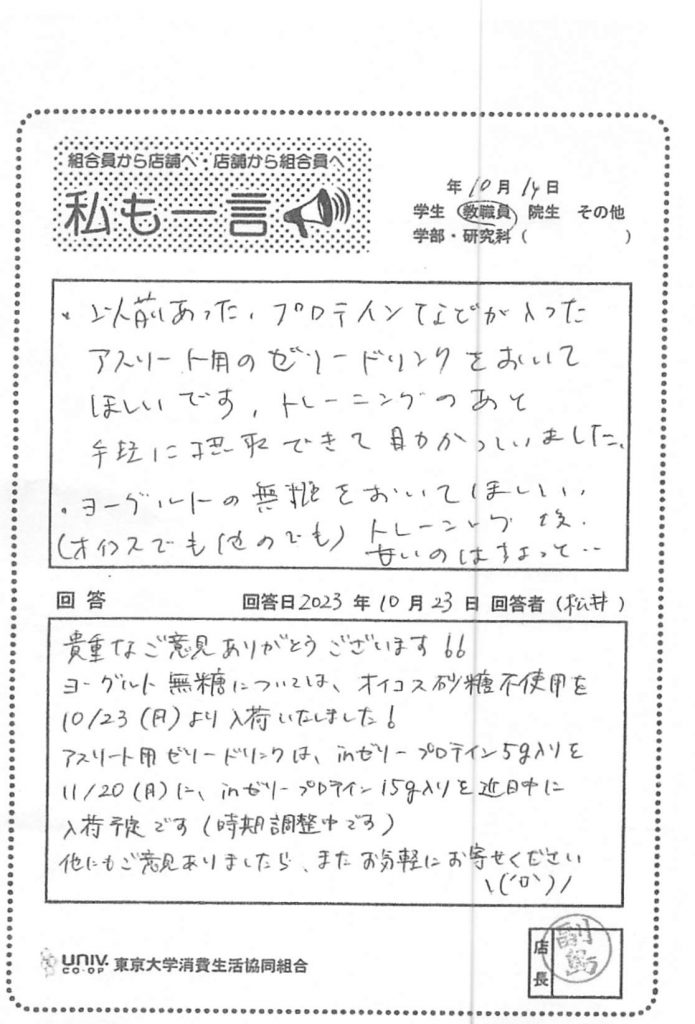 組合員から店舗へ・店舗から組合員へ
私も一言
年 10月 14日
学生 教職員 院生 その他
学部・研究科 ( )
・以前あった、プロテインなどが入った
アスリート用のゼリードリンクをおいて
ほしいです。トレーニングのあと
手軽に摂取できて助かっていました。
・ヨーグルトの無糖をおいてほしい。
(オイコスでも他のでも) トレーニング後、
甘いのはちょっと…
回答 回答日 2023 年 10 月 23 日 回答者 (松井)
貴重なご意見ありがとうございます!!
ヨーグルト無糖については、オイコス砂糖不使用を
10/23 (月) より入荷いたしました!
アスリート用ゼリードリンクは、inゼリープロテイン5g入りを
11/20 (月) に、inゼリープロテイン15g入りを近日中に
入荷予定です (時期調整中です)
他にもご意見ありましたら、またお気軽にお寄せください
\('0')/
UNIV.
CO-OP 東京大学消費生活協同組合
店長
副島